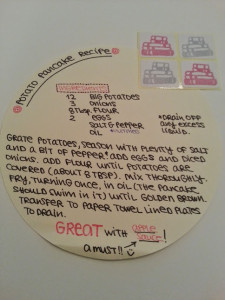 POTATO PANCAKE RECIPE
INGREDIENTS
12 BIG POTATOES
3 ONIONS
8 TBSP. FLOUR
2 EGGS
SALT & PEPPER
OIL
*DRAIN OFF
ANY EXCESS
LIQUID.
GRATE POTATOES, SEASON WITH PLENTY OF SALT
AND A BIT OF PEPPER.* ADD EGGS AND DICED
ONIONS. ADD FLOUR UNTIL POTATOES ARE
COVERED (ABOUT 8 TBSP). MIX THOROUGHLY.
FRY, TURNING ONCE, IN OIL (THE PANCAKE
SHOULD SWIM IN IT) UNTIL GOLDEN BROWN.
TRANSFER TO PAPER TOWEL LINED PLATES
TO DRAIN.
GREAT WITH APPLE
SAUCE!
A MUST!!